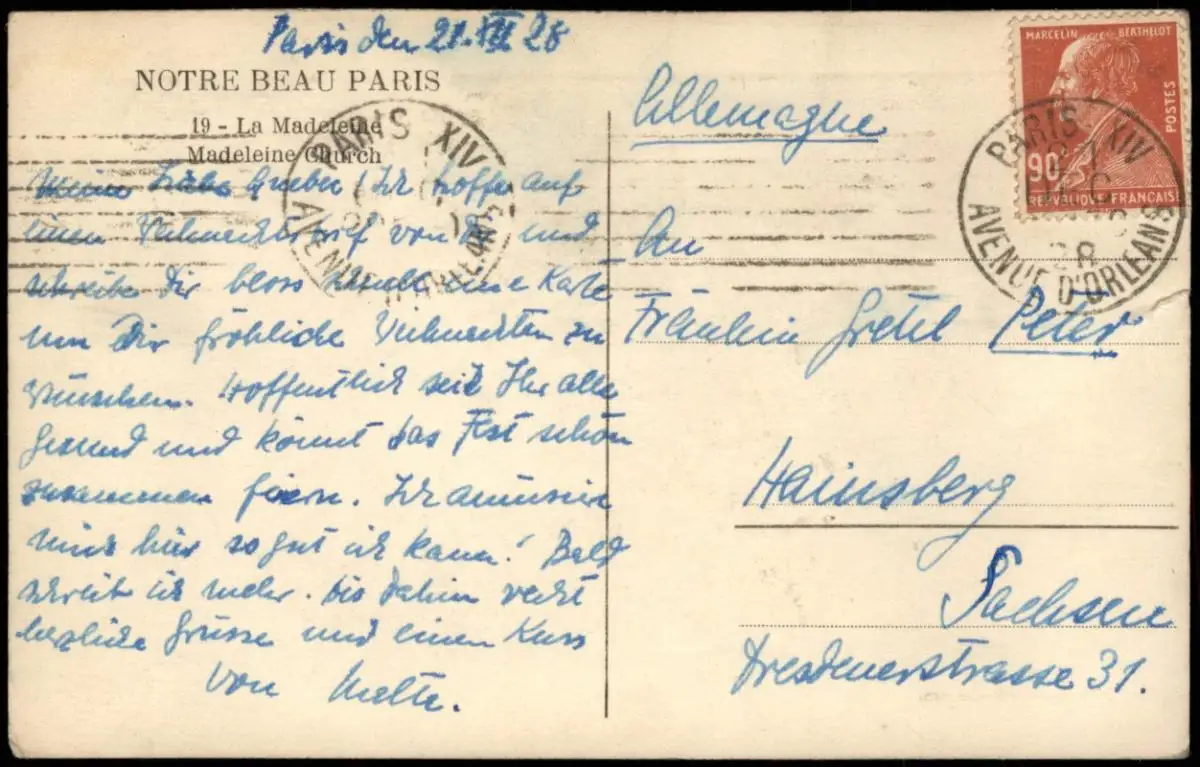 Paris den 21. XII 28
NOTRE BEAU PARIS
19 - La Madeleine
Madeleine Church
Meine Liebe Ich hoffe auf
einen Veihnachtsbrief von Dir und
schreibe Dir bloss schnell eine Karte
um Dir fröhliche Veihnachten zu
wünschen. Hoffentlich seit Ihr alle
gesund und könnt das Fest schön
zusammen feiern. Ich amüsire
mich hier so gut ich kann! Bald
schreib ich mehr. bis dahin recht
herzliche Grüsse und einen Kuss
von
PARIS XIV
AVENUE D'ORLEANS
Allemagne
An
Fräulein Gretel Peter
Hainsberg
Sachsen
Dresdenerstrasse 31.
MARCELIN BERTHELOT
POSTES
90
REPUBLIQUE FRANCAISE
PARIS XIV
28
AVENUE D'ORLEANS